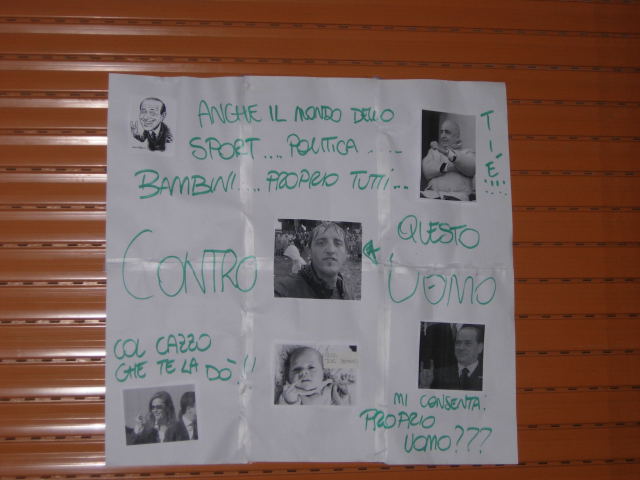 ANCHE IL MONDO DELLO
SPORT.... POLITICA .....
BAMBINI.... PROPRIO TUTTI...
TIÉ!!!!
CONTRO
QUESTO
UOMO
COL CAZZO
CHE TE LA DÒ!!
MI CONSENTA:
PROPRIO
UOMO???